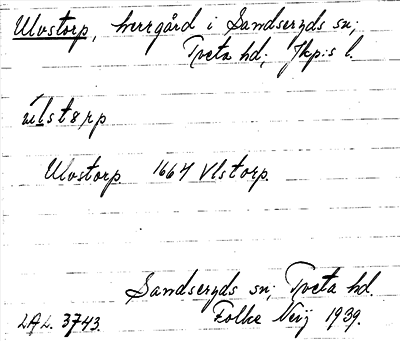 Ulvstorp, herrgård i Sandseryds sn;
Tveta hd; Jkp:s l.
ùlstərp
Ulvstorp. 1664 Vlstorp.
Sandseryds sn; Tveta hd.
LAL. 3743. Folke Neij 1939.